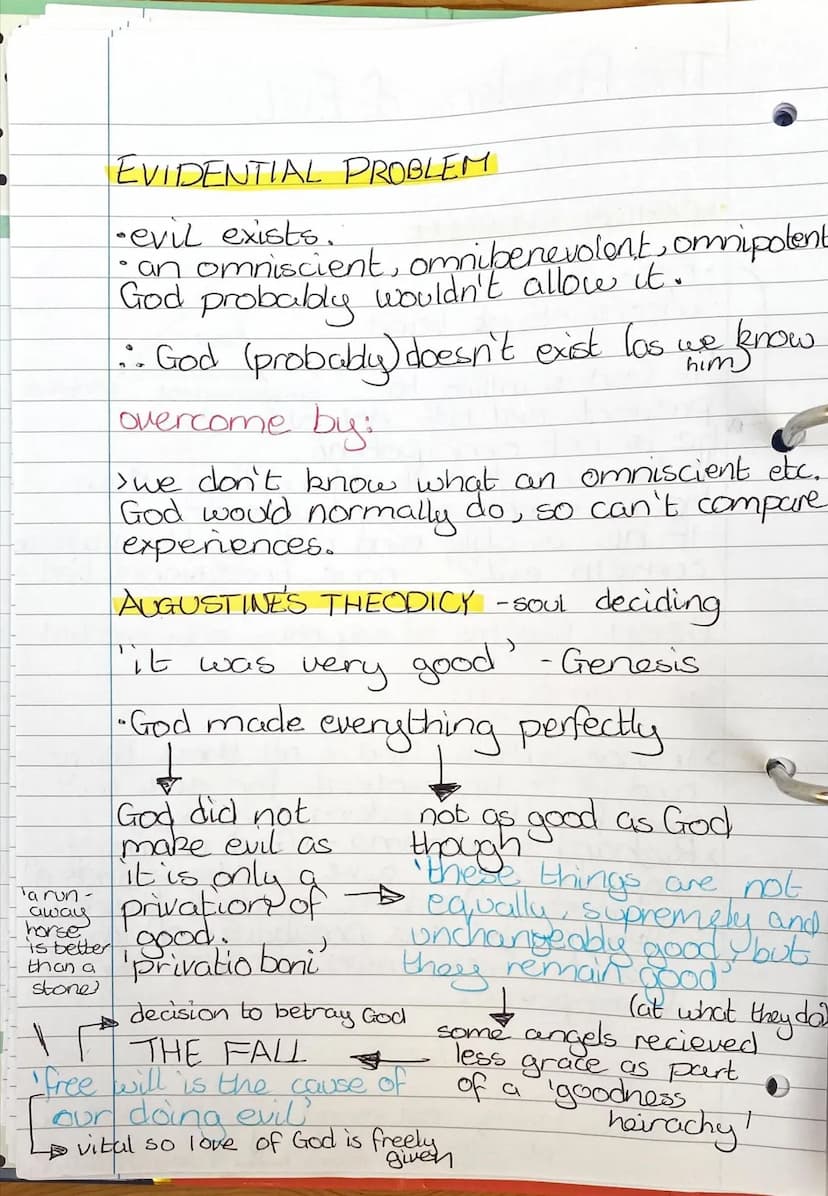 EVIDENTIAL PROBLEM
•evil exists.
•an omniscient, omnibenevolent, omnipotent
God probably wouldn't allow it.
∴ God (probably) doesn't exist (as we know
him)
overcome by:
>we don't know what an omniscient etc.
God would normally do, so can't compare
experiences.
AUGUSTINE'S THEODICY - soul deciding
'it was very good' - Genesis
•God made everything perfectly
God did not
make evil as
it is only a
privation of
good.
'privatio boni'
'a run-
away
horse
is better
than a
stone'
not as good as God
though
'these things are not
equally, supremely and
unchangeably good, but
they remain good'
(at what they do)
some angels recieved
less grace as part
of a 'goodness
heirachy'
decision to betray God
THE FALL
'free will is the cause of
our doing evil'
vital so love of God is freely
given